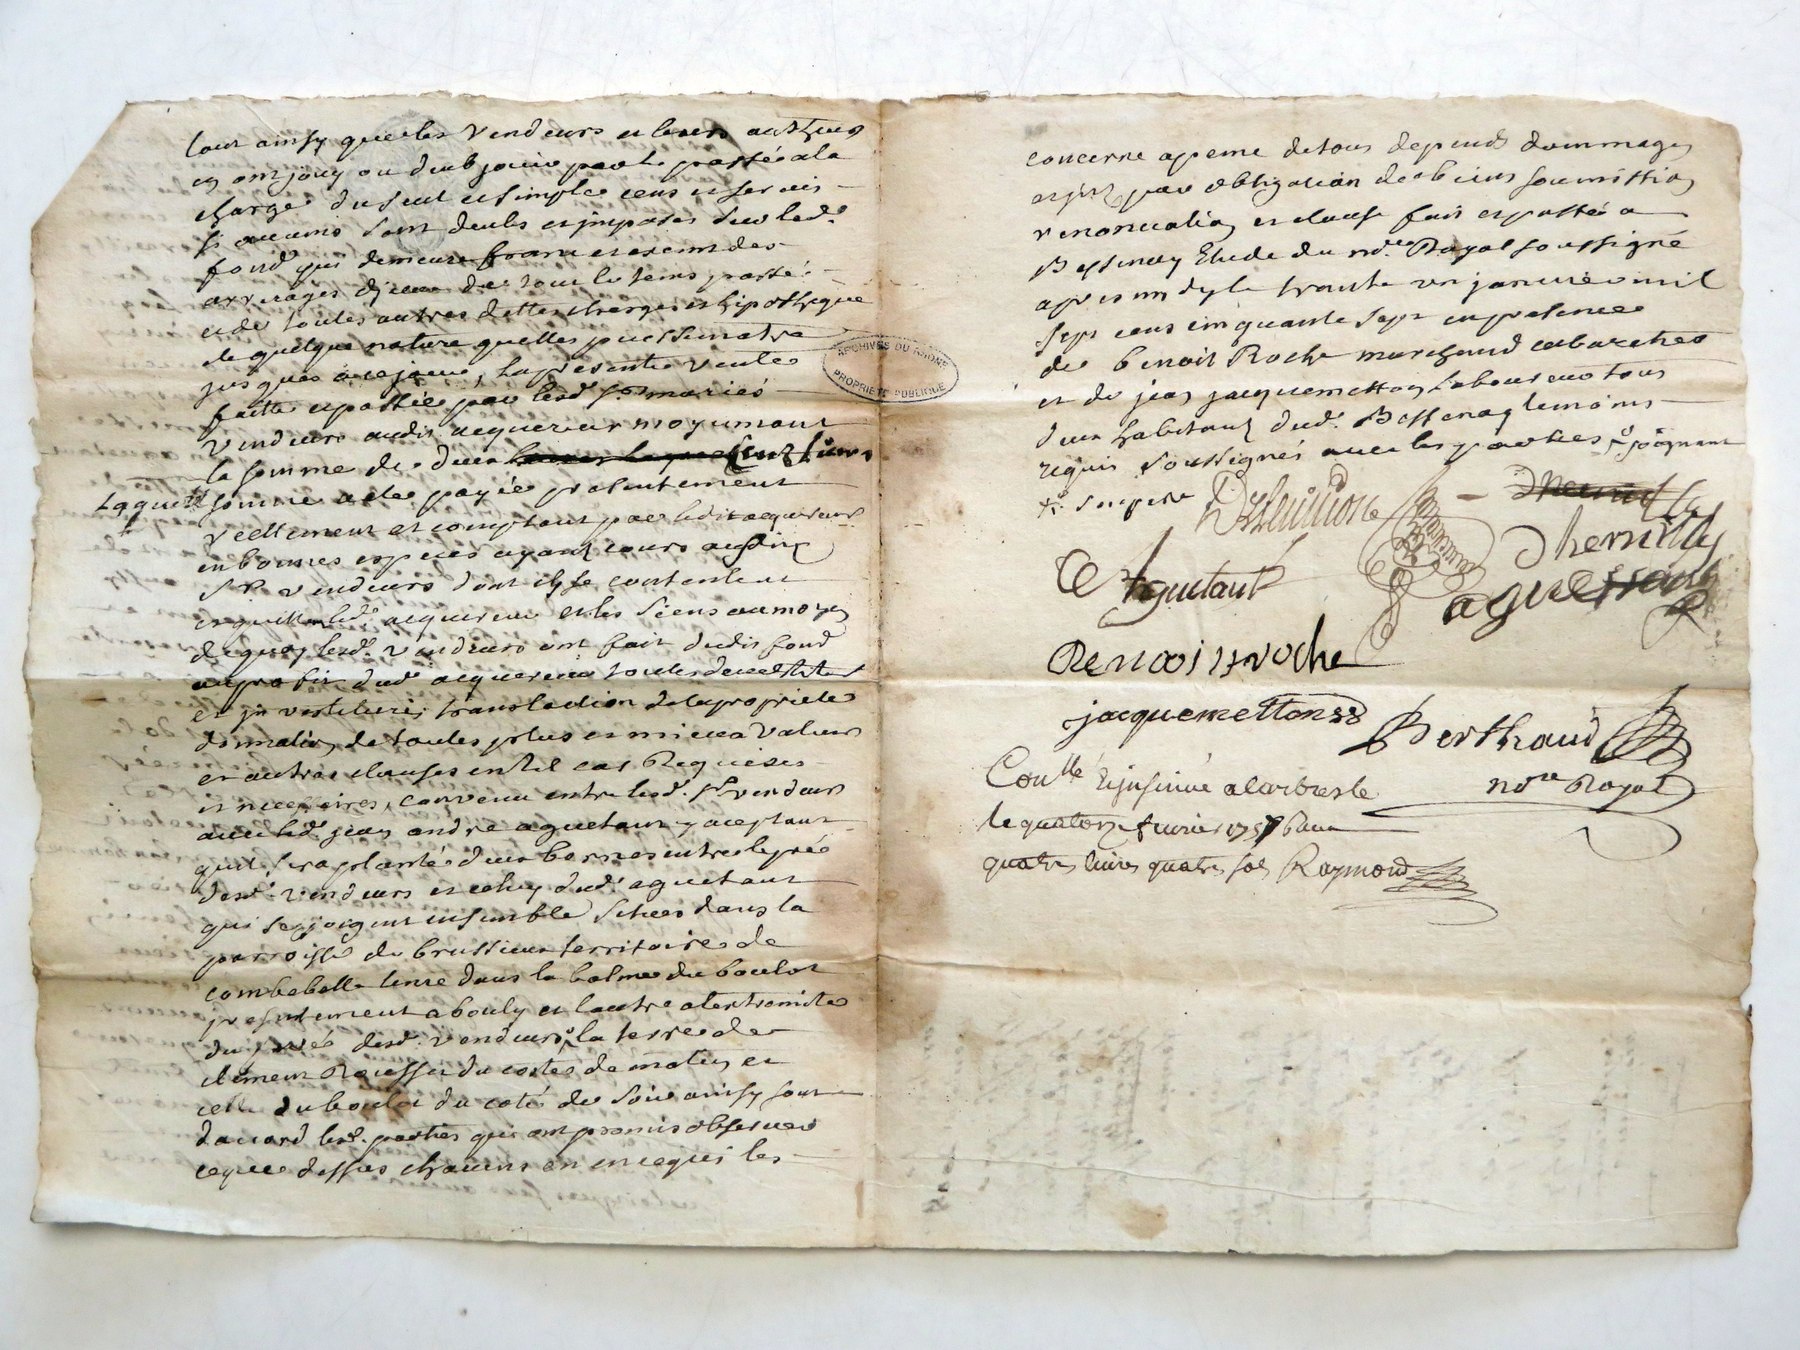 tout ainsy que les vendeurs et leurs autheurs
en ont jouy ou deub jouir par le passé a la
charge du seul et simple cens et servis
si aucuns sont deubs et imposés sur led.
fond qui demeure franc et exempt des
arrerages d'jceux de tout le tems passé
et de toutes autres dettes charges et hipotheque
de quelque nature quelles puissent etre
jusques a ce jour, la presente vente
faitte et passée par lesd. Srs mariés
vendeurs audit acquereur moyennant
la somme de deux cent livres
Laquelle
somme a eté payée presentement
reellement et comptant par ledit acquereur
en bonnes especes ayant cours audits
Srs vendeurs dont ils se contentent
et quittent led. acquereur et les siens au moyen
de quoy lesd. vendeurs ont fait dudit fond
au profit dud. acquereur toutes devestitures
et jnvestitures, translation de la proprieté
donnation de toutes plus et mieux values
et autres clauses en tel cas requises
et necessaires, convenu entre lesd. Srs vendeurs
avec led. jean andré aguetaut y aceptant
quil sera planté deux bornes entre le pré
desd. vendeurs et celuy dud. aguetant
qui se joignent ensemble scitués dans la
parroisse de brussieux territoire de
combebelle lune dans la balme du boulot
presentement abouly et lautre a lextremité
du pré desd. vendeurs, la terre de
clement Rousset du costé de matin et
celle du boulot du coté de soir ainsy sont
daccord lesd. parties qui ont promis observer
ce que dessus chacuns en ce qui les
concerne a peine de tous depends dommages
et jnts par obligation de biens soumission
renonciation et clause fait et passé a
Bessenay Etude du nore Royal soussigné
apres midy le trente un janvier mil
sept cens cinquante sept en presence
de benoit Roche marchand cabaretier
et de jean jacquemetton laboureur tous
deux habitant dud. Bessenay temoins
requis soussignés avec les parties
Aguetant
Dhernilly
aguettant
Benoist roche
jacquemetton
Berthaud
nore Royal
Conllé & jnsinué a larbresle
le quatorze fevrier 1757 Reçu
quatre livres quatre sols Raymond
ARCHIVES DU RHONE
PROPRIETE PUBLIQUE